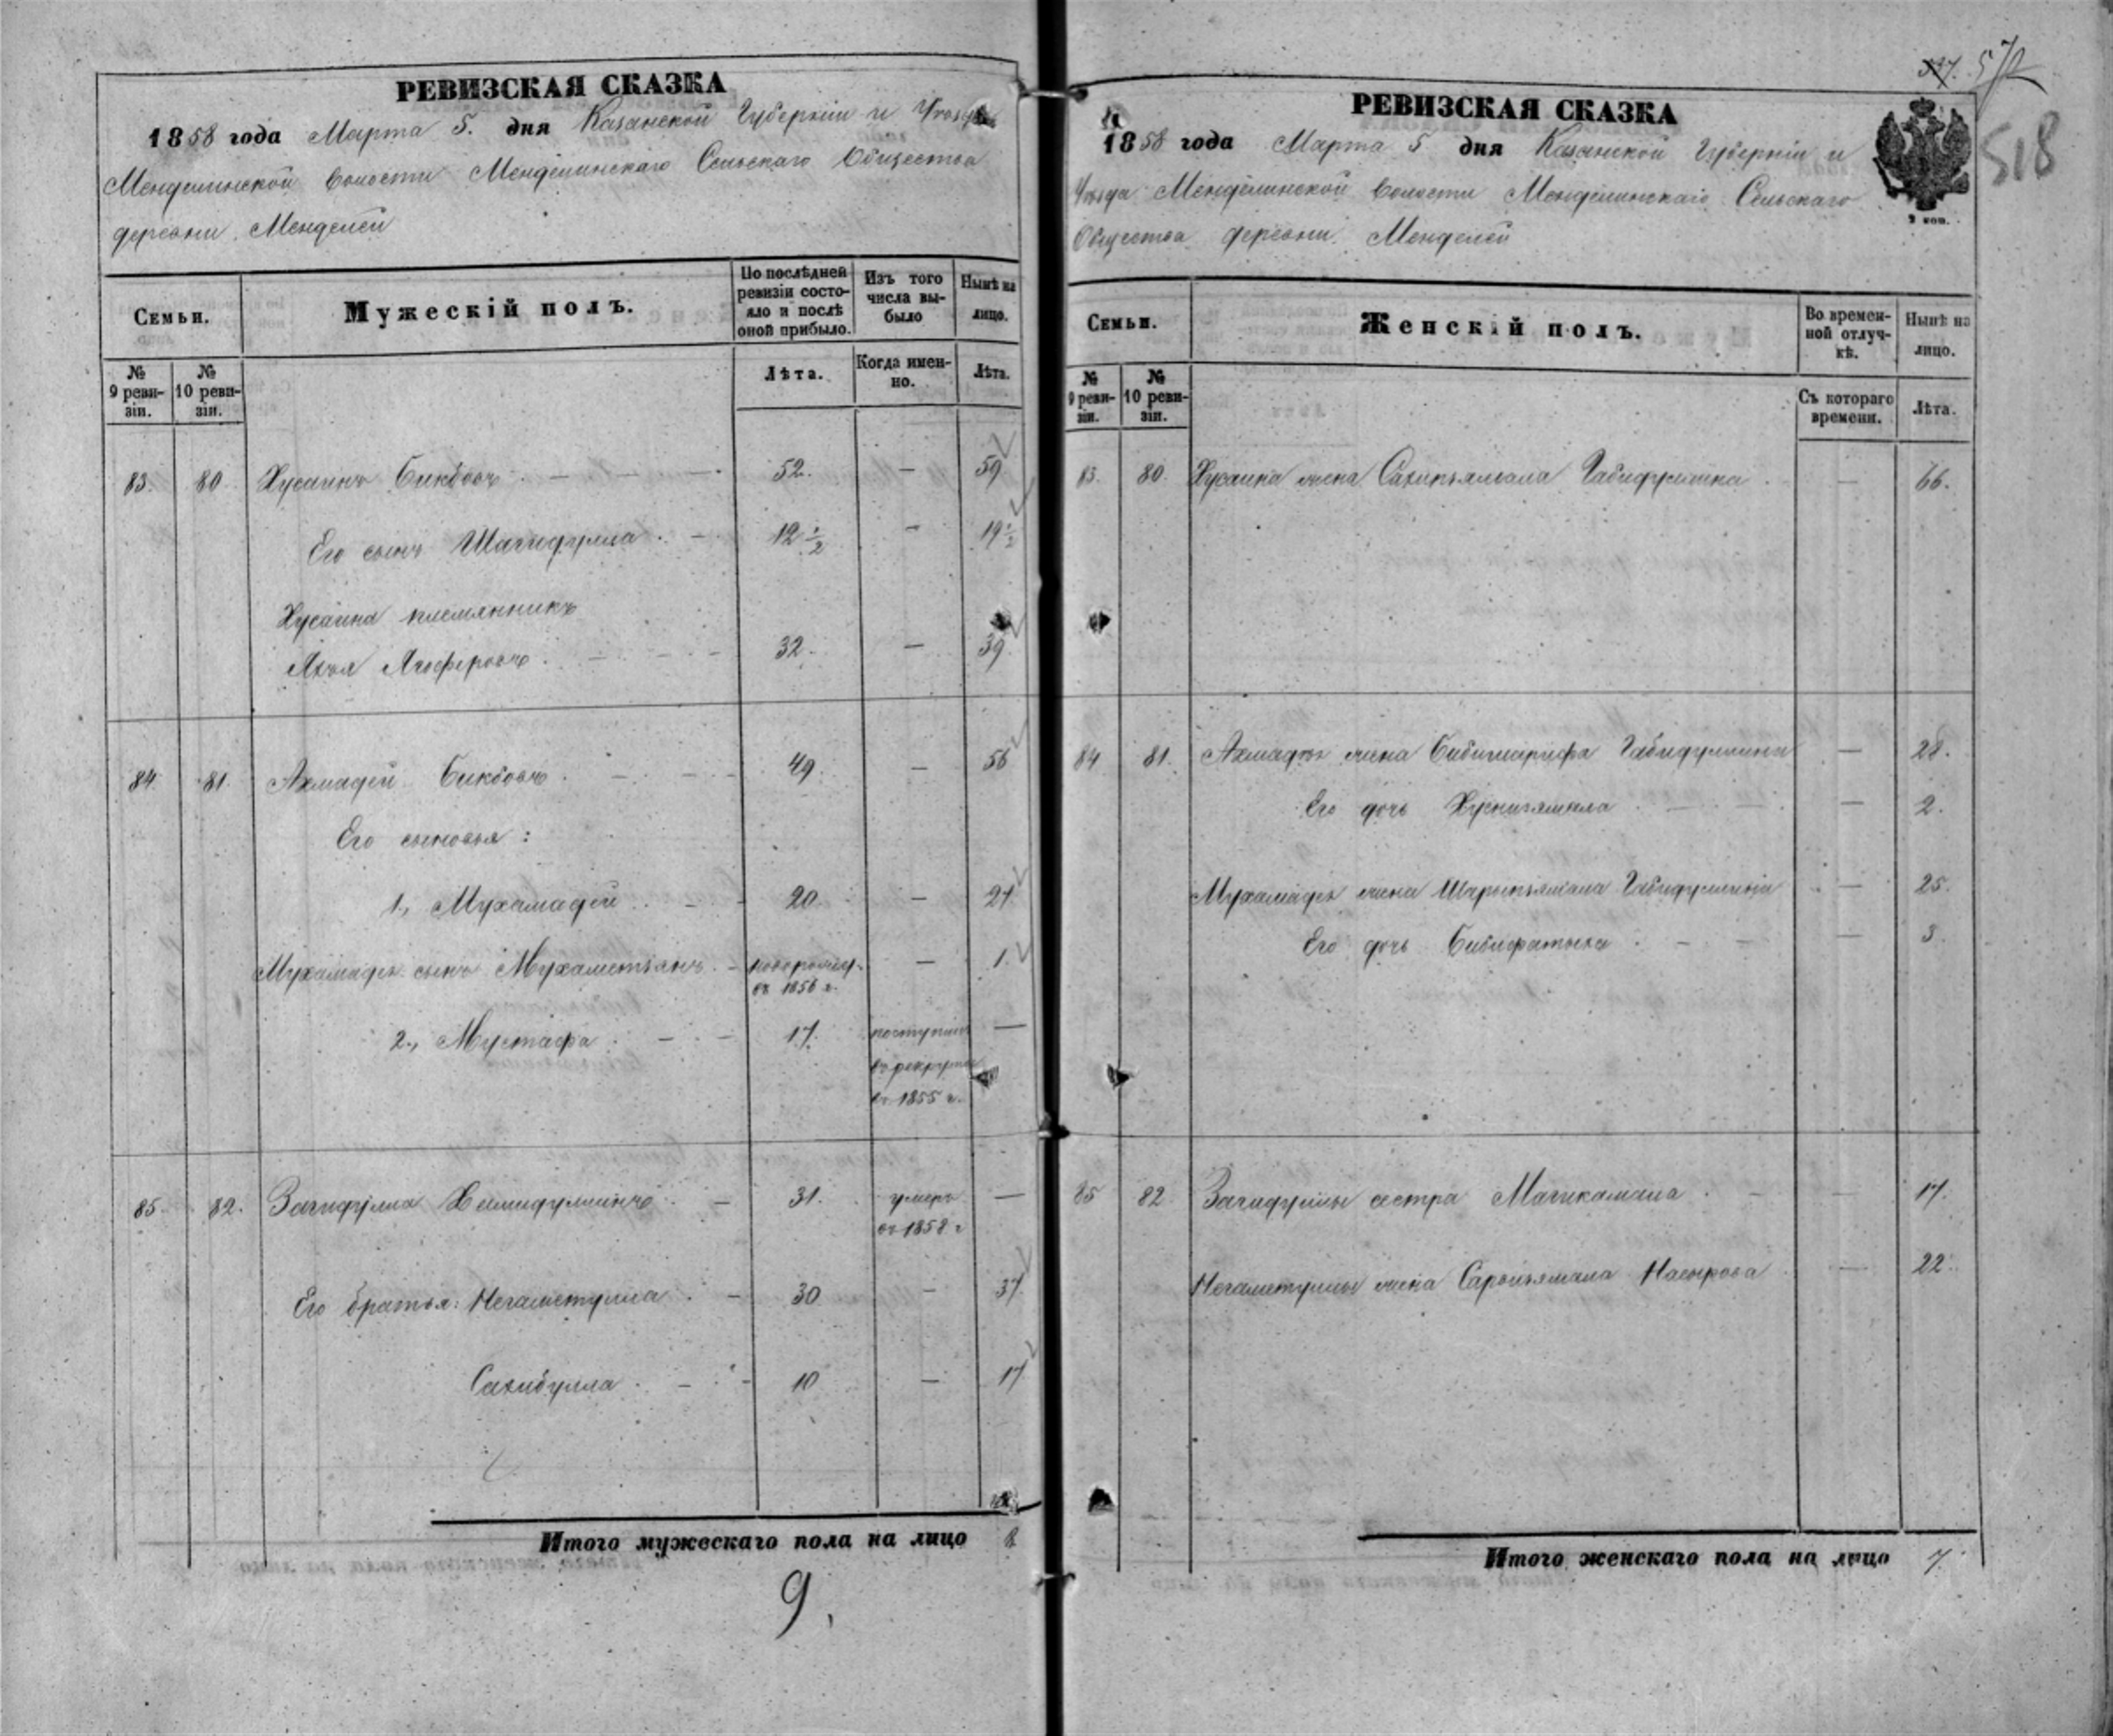 РЕВИЗСКАЯ СКАЗКА
1858 года Марта 5. дня Казанской Губерніи и Уѣзда
Менделинской волости Менделинскаго Сельскаго Общества
деревни Менделей
Семьи.
Мужескій полъ.
По послѣдней ревизіи состояло и послѣ оной прибыло.
Изъ того числа выбыло
Нынѣ на лицо.
№ 9 ревизіи.
№ 10 ревизіи.
Лѣта.
Когда именно.
Лѣта.
83. 80. Хусаинъ Бикбовъ 52. — 59.
Его сынъ Шагидулла 12 1/2 — 19 1/2
Хусаина племянникъ
32. — 39.
84. 81. Ахмадей Бикбовъ 49. — 56
Его сыновья:
1., Мухамадей 20 — 27
Мухамадея сынъ Мухаметьянъ новорожд. — 1.
въ 1856 г.
2., Мустафа 17. поступилъ —
въ рекруты
въ 1855 г.
85. 82. Загидулла Хамидуллинъ 31. умеръ —
въ 1858 г
Его братья: Негаметулла 30 — 37
Сахибулла 10 — 17
Итого мужескаго пола на лицо 8
9.
РЕВИЗСКАЯ СКАЗКА
1858 года Марта 5 дня Казанской Губерніи и
Уѣзда Менделинской волости Менделинскаго Сельскаго
Общества деревни Менделей
572
518
2 коп.
Семьи.
Женскій полъ.
Во временной отлучкѣ.
Нынѣ на лицо.
№ 9 ревизіи.
№ 10 ревизіи.
Съ котораго времени.
Лѣта.
83. 80. Хусаина жена Сахипъямала Габидуллина — 66.
84 81. Ахмадея жена Бибишарифа Габидуллина — 28.
Его дочь Хуснизямала — 2.
Мухамадея жена Шарипъямала Габидуллина — 25.
Его дочь Бибифатыха — 3.
85 82 Загидуллы сестра Магикамала — 17.
Негаметуллы жена Сарбиямала Насырова — 22.
Итого женскаго пола на лицо 7.